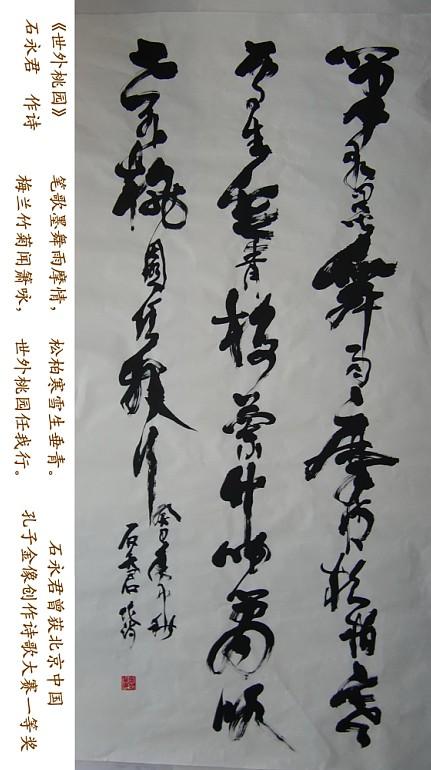 《世外桃园》
石永君 作诗
笔歌墨舞雨摩情， 松柏寒雪生垂青。
梅兰竹菊闻箫咏， 世外桃园任我行。
石永君曾获北京中国
孔子金像创作诗歌大赛一等奖
笔歌墨舞雨摩情松柏寒
世外桃園任我行
石永君